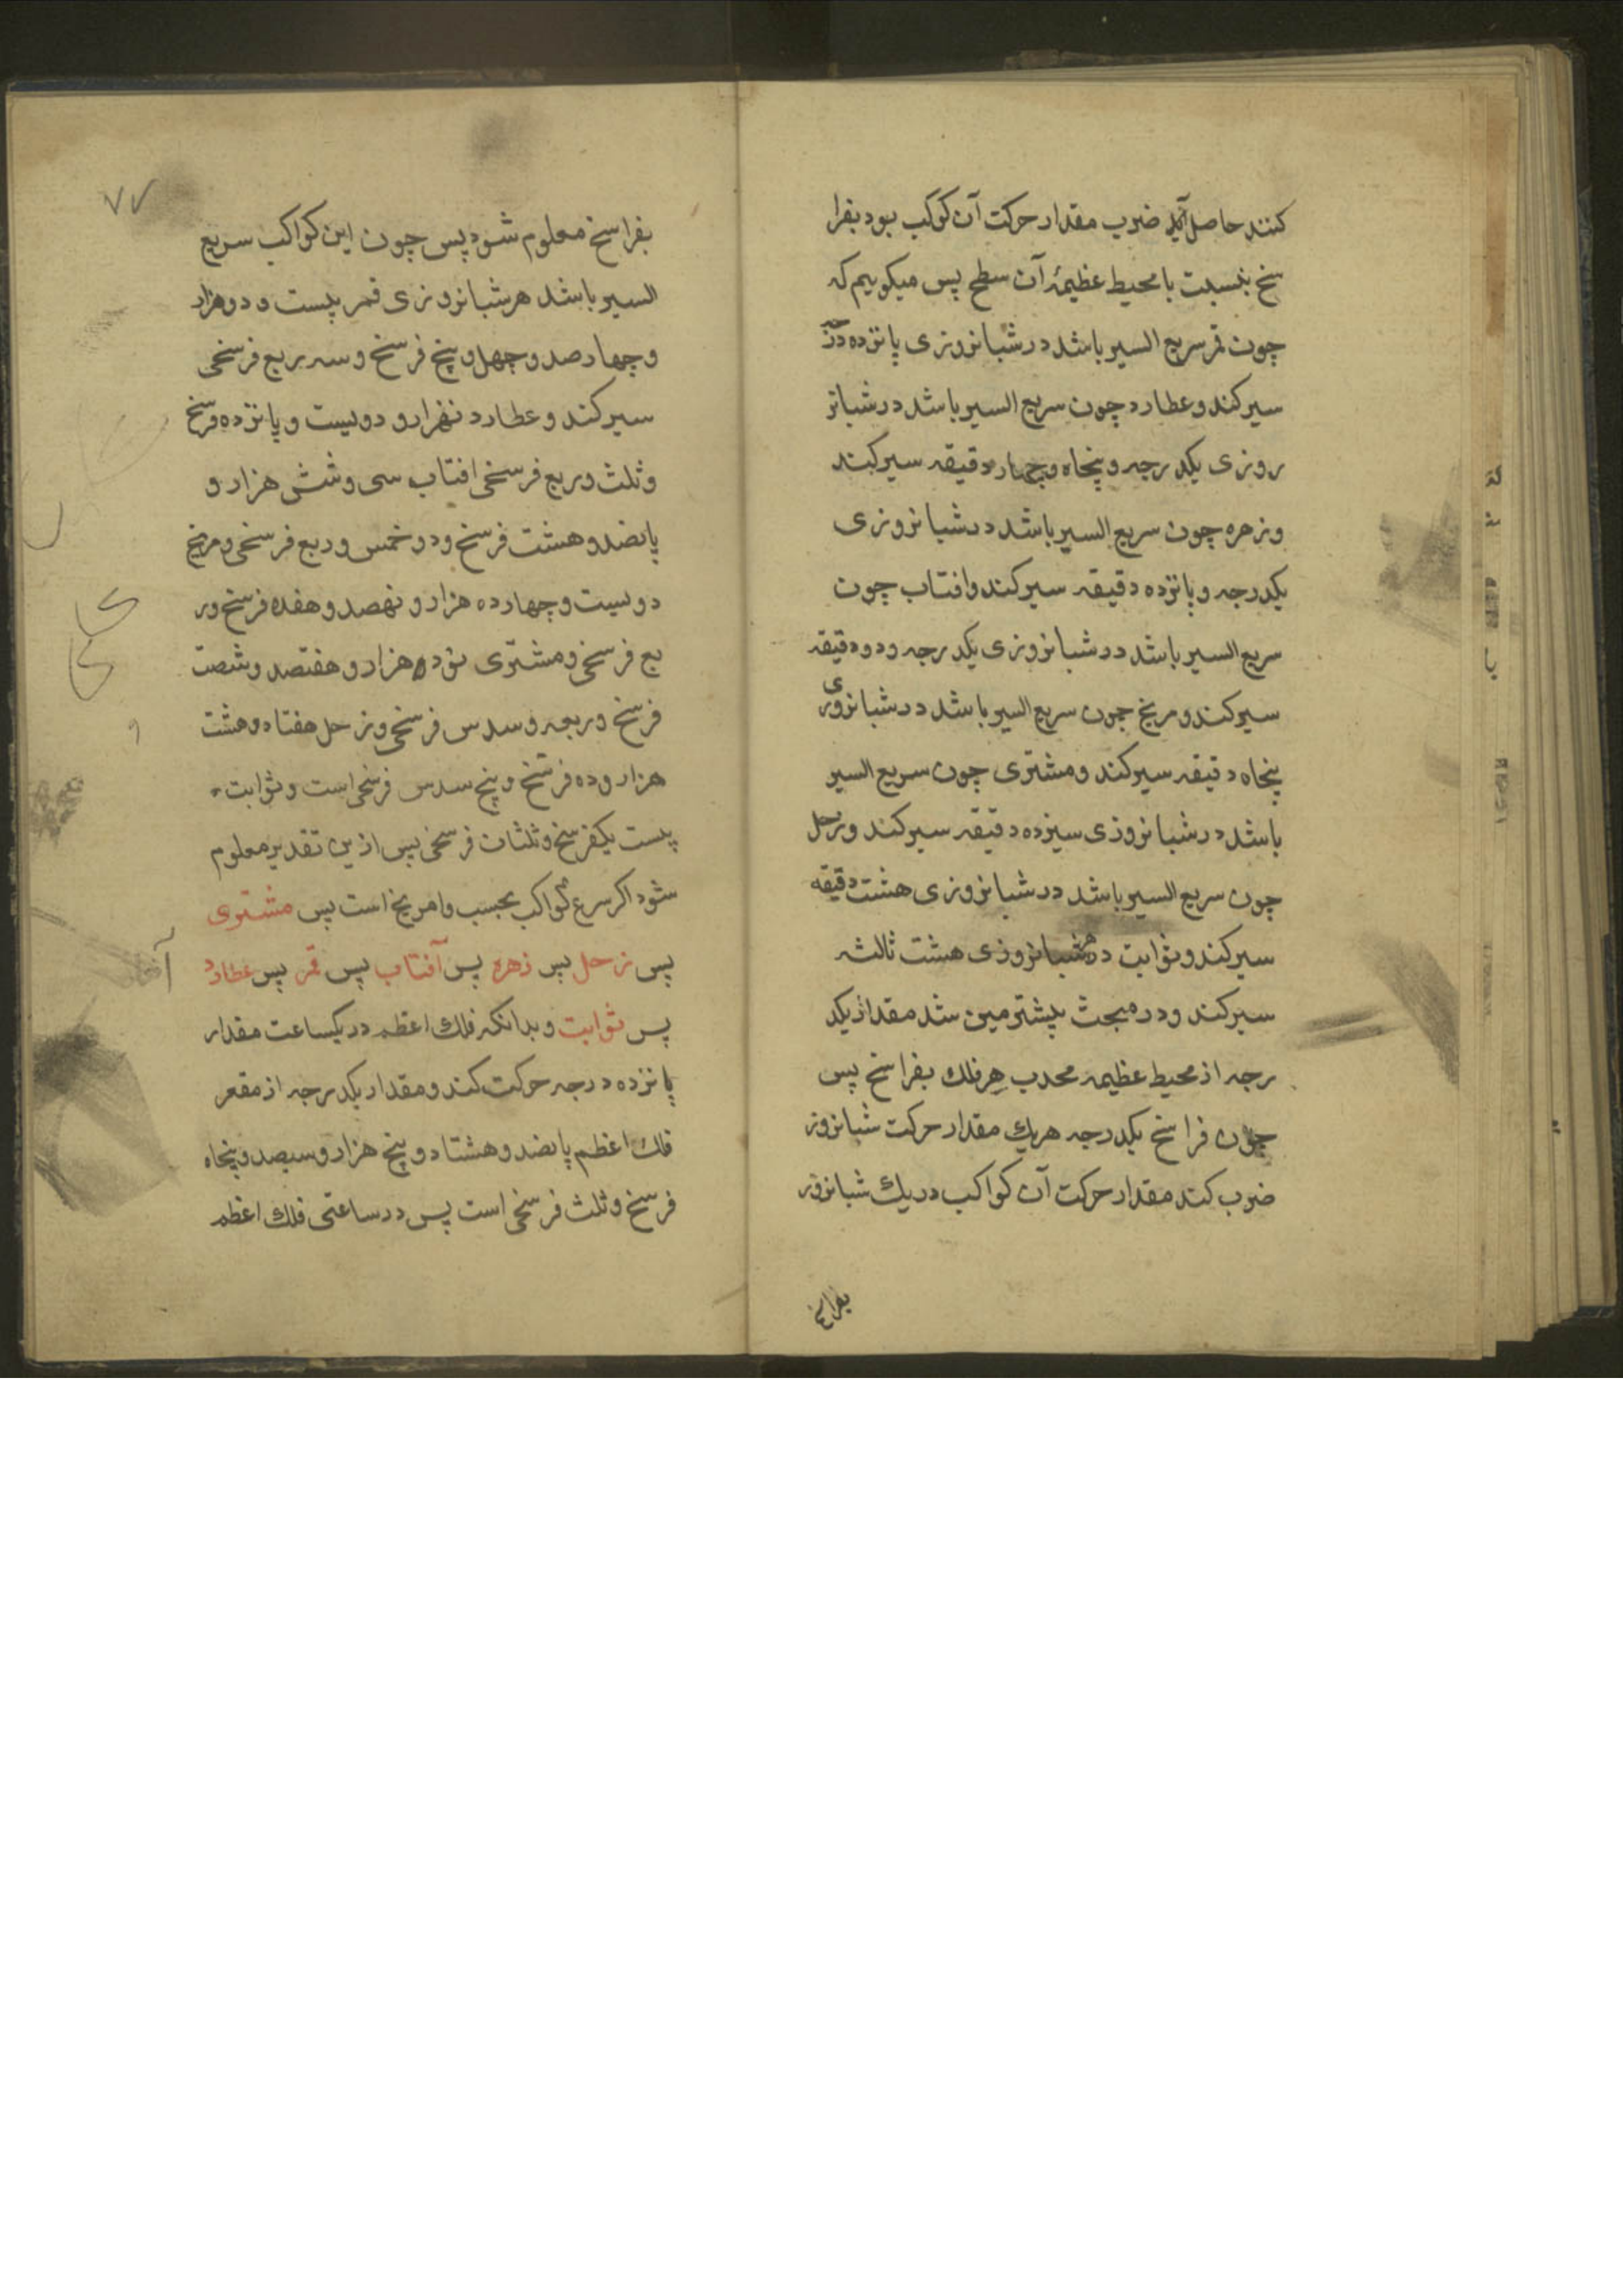 کنند حاصل آید ضرب مقدار حرکت آن کوکب بود بفرا
سخ بنسبت با محیط عظیمهٔ آن سطح پس میکوییم که
چون قمر سریع السیر باشد در شبانروزی پانزده درجه
سیر کند و عطارد چون سریع السیر باشد در شبانر
روزی یکدرجه و پنجاه و چهار دقیقه سیر کند
و زهره چون سریع السیر باشد در شبانروزی
یکدرجه و پانزده دقیقه سیر کند و افتاب چون
سریع السیر باشد در شبانروزی یکدرجه و دو دقیقه
سیر کند و مریخ چون سریع السیر باشد در شبانروزی
پنجاه دقیقه سیر کند و مشتری چون سریع السیر
باشد در شبانروزی سیزده دقیقه سیر کند و زحل
چون سریع السیر باشد در شبانروزی هشت دقیقه
سیر کند و ثوابت در شبانروزی هشت ثالثه
سیر کند و در مبحث پیشتر مبین شد مقدار یکد
رجه از محیط عظیمه محدب هر فلک بفراسخ پس
چون فراسخ یکدرجه هریک مقدار حرکت شبانروز
ضرب کند مقدار حرکت آن کواکب در یک شبانروز
بفراسخ
۷۷
بفراسخ معلوم شود پس چون این کواکب سریع
السیر باشد هر شبانروزی قمر بیست و دو هزار
و چهارصد و چهل و پنج فرسخ و سه ربع فرسخی
سیر کند و عطارد نهزار و دویست و پانزده فرسخ
و ثلث و ربع فرسخی افتاب سی و شش هزار و
پانصد و هشت فرسخ و دو خمس و ربع فرسخی و مریخ
دویست و چهارده هزار و نهصد و هفده فرسخ و ر
بع فرسخی و مشتری نوده هزار و هفتصد و شصت
فرسخ و ربعه و سدس فرسخی و زحل هفتاد و هشت
هزار و ده فرسخ و پنج سدس فرسخی است و ثوابت
بیست یکفرسخ و ثلثان فرسخی پس ازین تقدیر معلوم
شود اکر سرع کواکب بحسب وا مریخ است پس مشتری
پس زحل پس زهره پس آفتاب پس قمر پس عطارد
پس ثوابت و بدانکه فلک اعظم در یکساعت مقدار
پانزده درجه حرکت کند و مقدار یکدرجه از مقعر
فلک اعظم پانصد و هشتاد و پنج هزار و سیصد و پنجاه
فرسخ و ثلث فرسخی است پس در ساعتی فلک اعظم